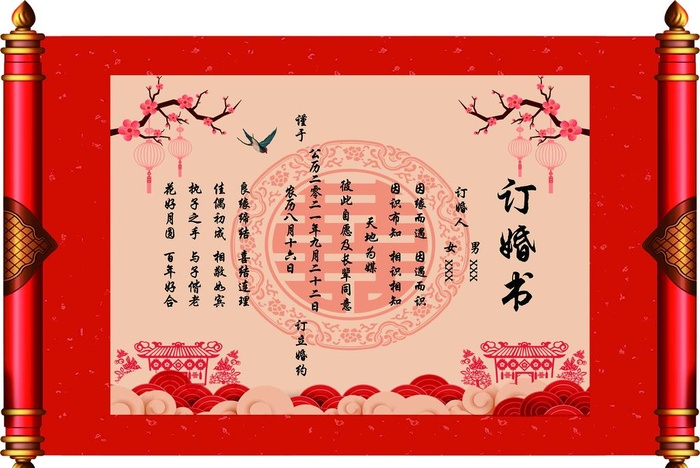 订婚书
订婚人 男 XXX
女 XXX
因缘而遇 因遇而识
因识布知 相识相知
天地为媒
彼此自愿及长辈同意
谨于
公历二零二一年九月二十二日
农历八月十六日
订立婚约
良缘缔结 喜结连理
佳偶初成 相敬如宾
执子之手 与子偕老
花好月圆 百年好合